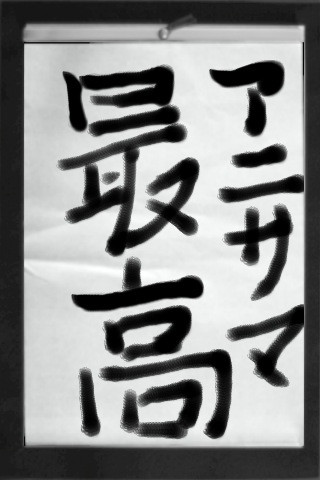 アニサマ
最高